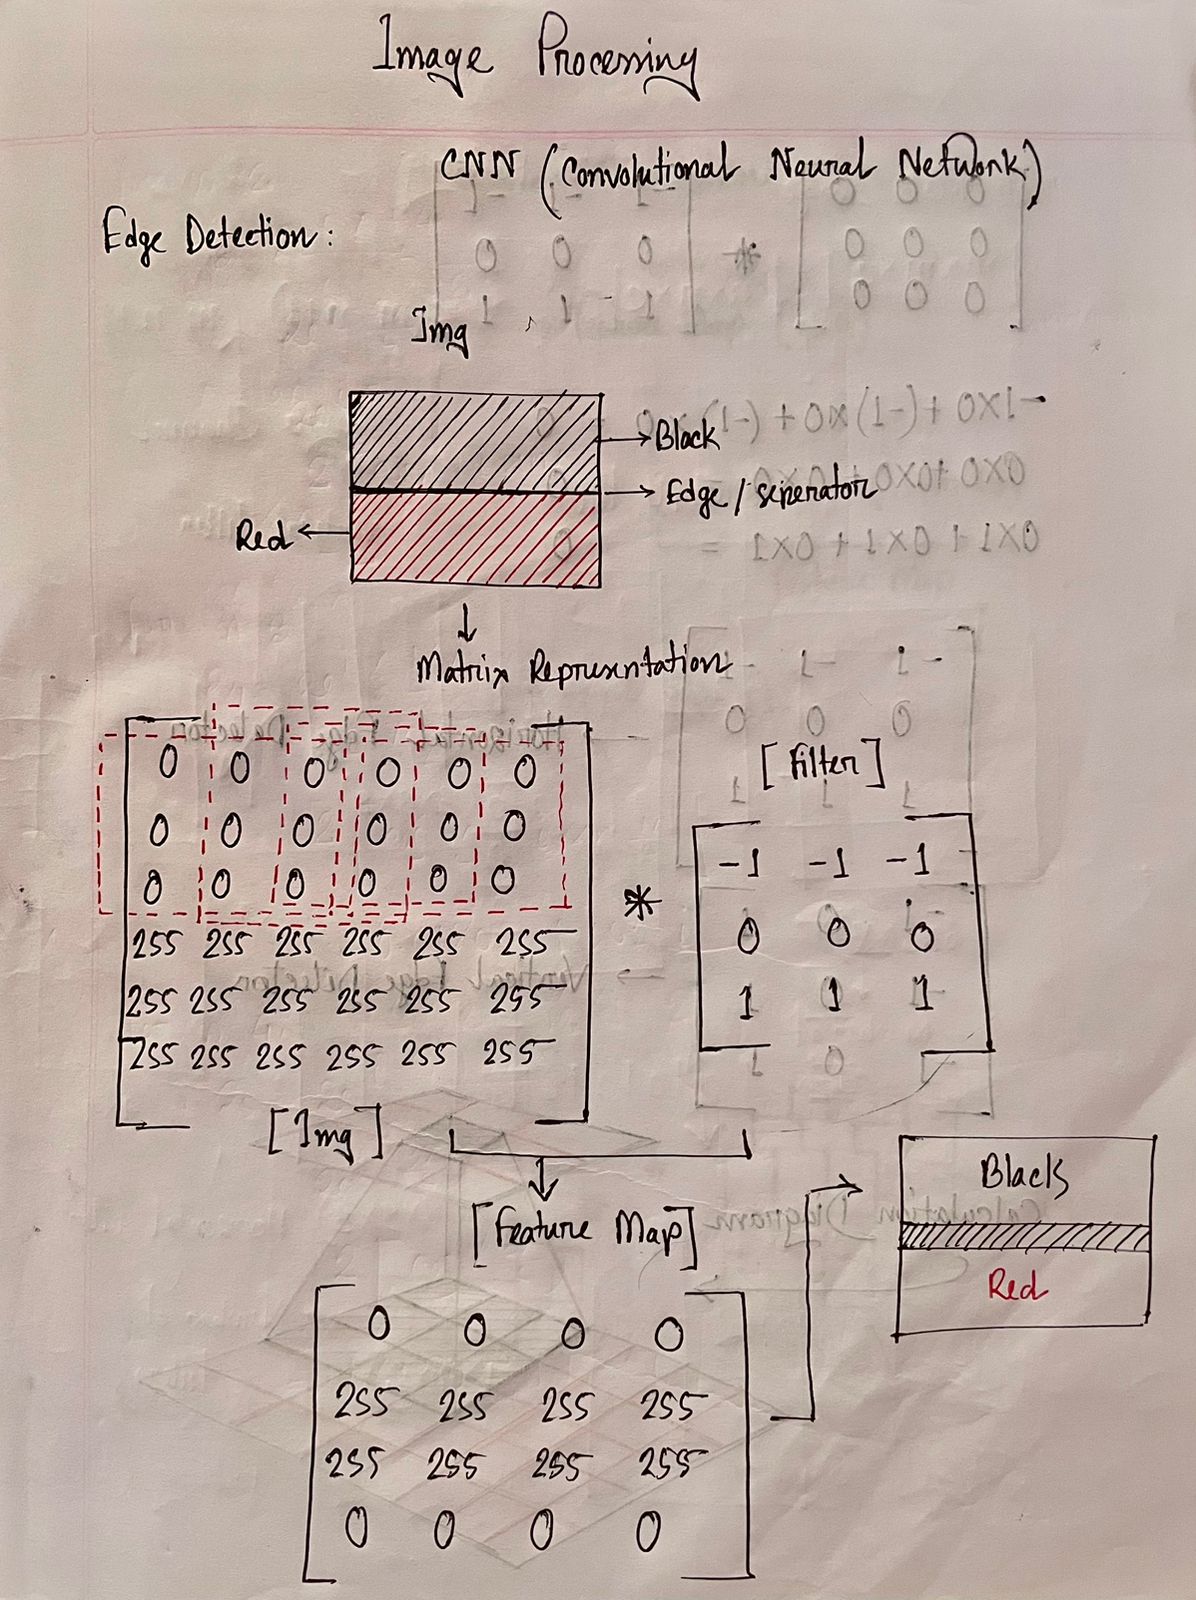 Image Processing
CNN (Convolutional Neural Network)
Edge Detection:
Img
Black
Edge / seperator
Red
Matrix Representation
0 0 0 0 0 0
0 0 0 0 0 0
0 0 0 0 0 0
255 255 255 255 255 255
255 255 255 255 255 255
255 255 255 255 255 255
[Img]
*
[Filter]
-1 -1 -1
0 0 0
1 1 1
[Feature Map]
0 0 0 0
255 255 255 255
255 255 255 255
0 0 0 0
Black
Red